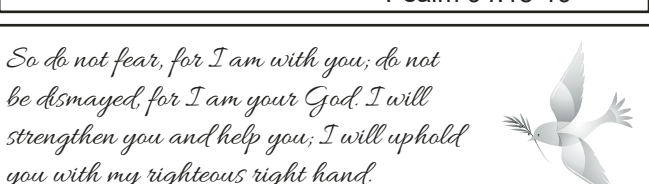 So do not fear, for I am with you; do not
be dismayed, for I am your God. I will
strengthen you and help you; I will uphold
you with my righteous right hand.